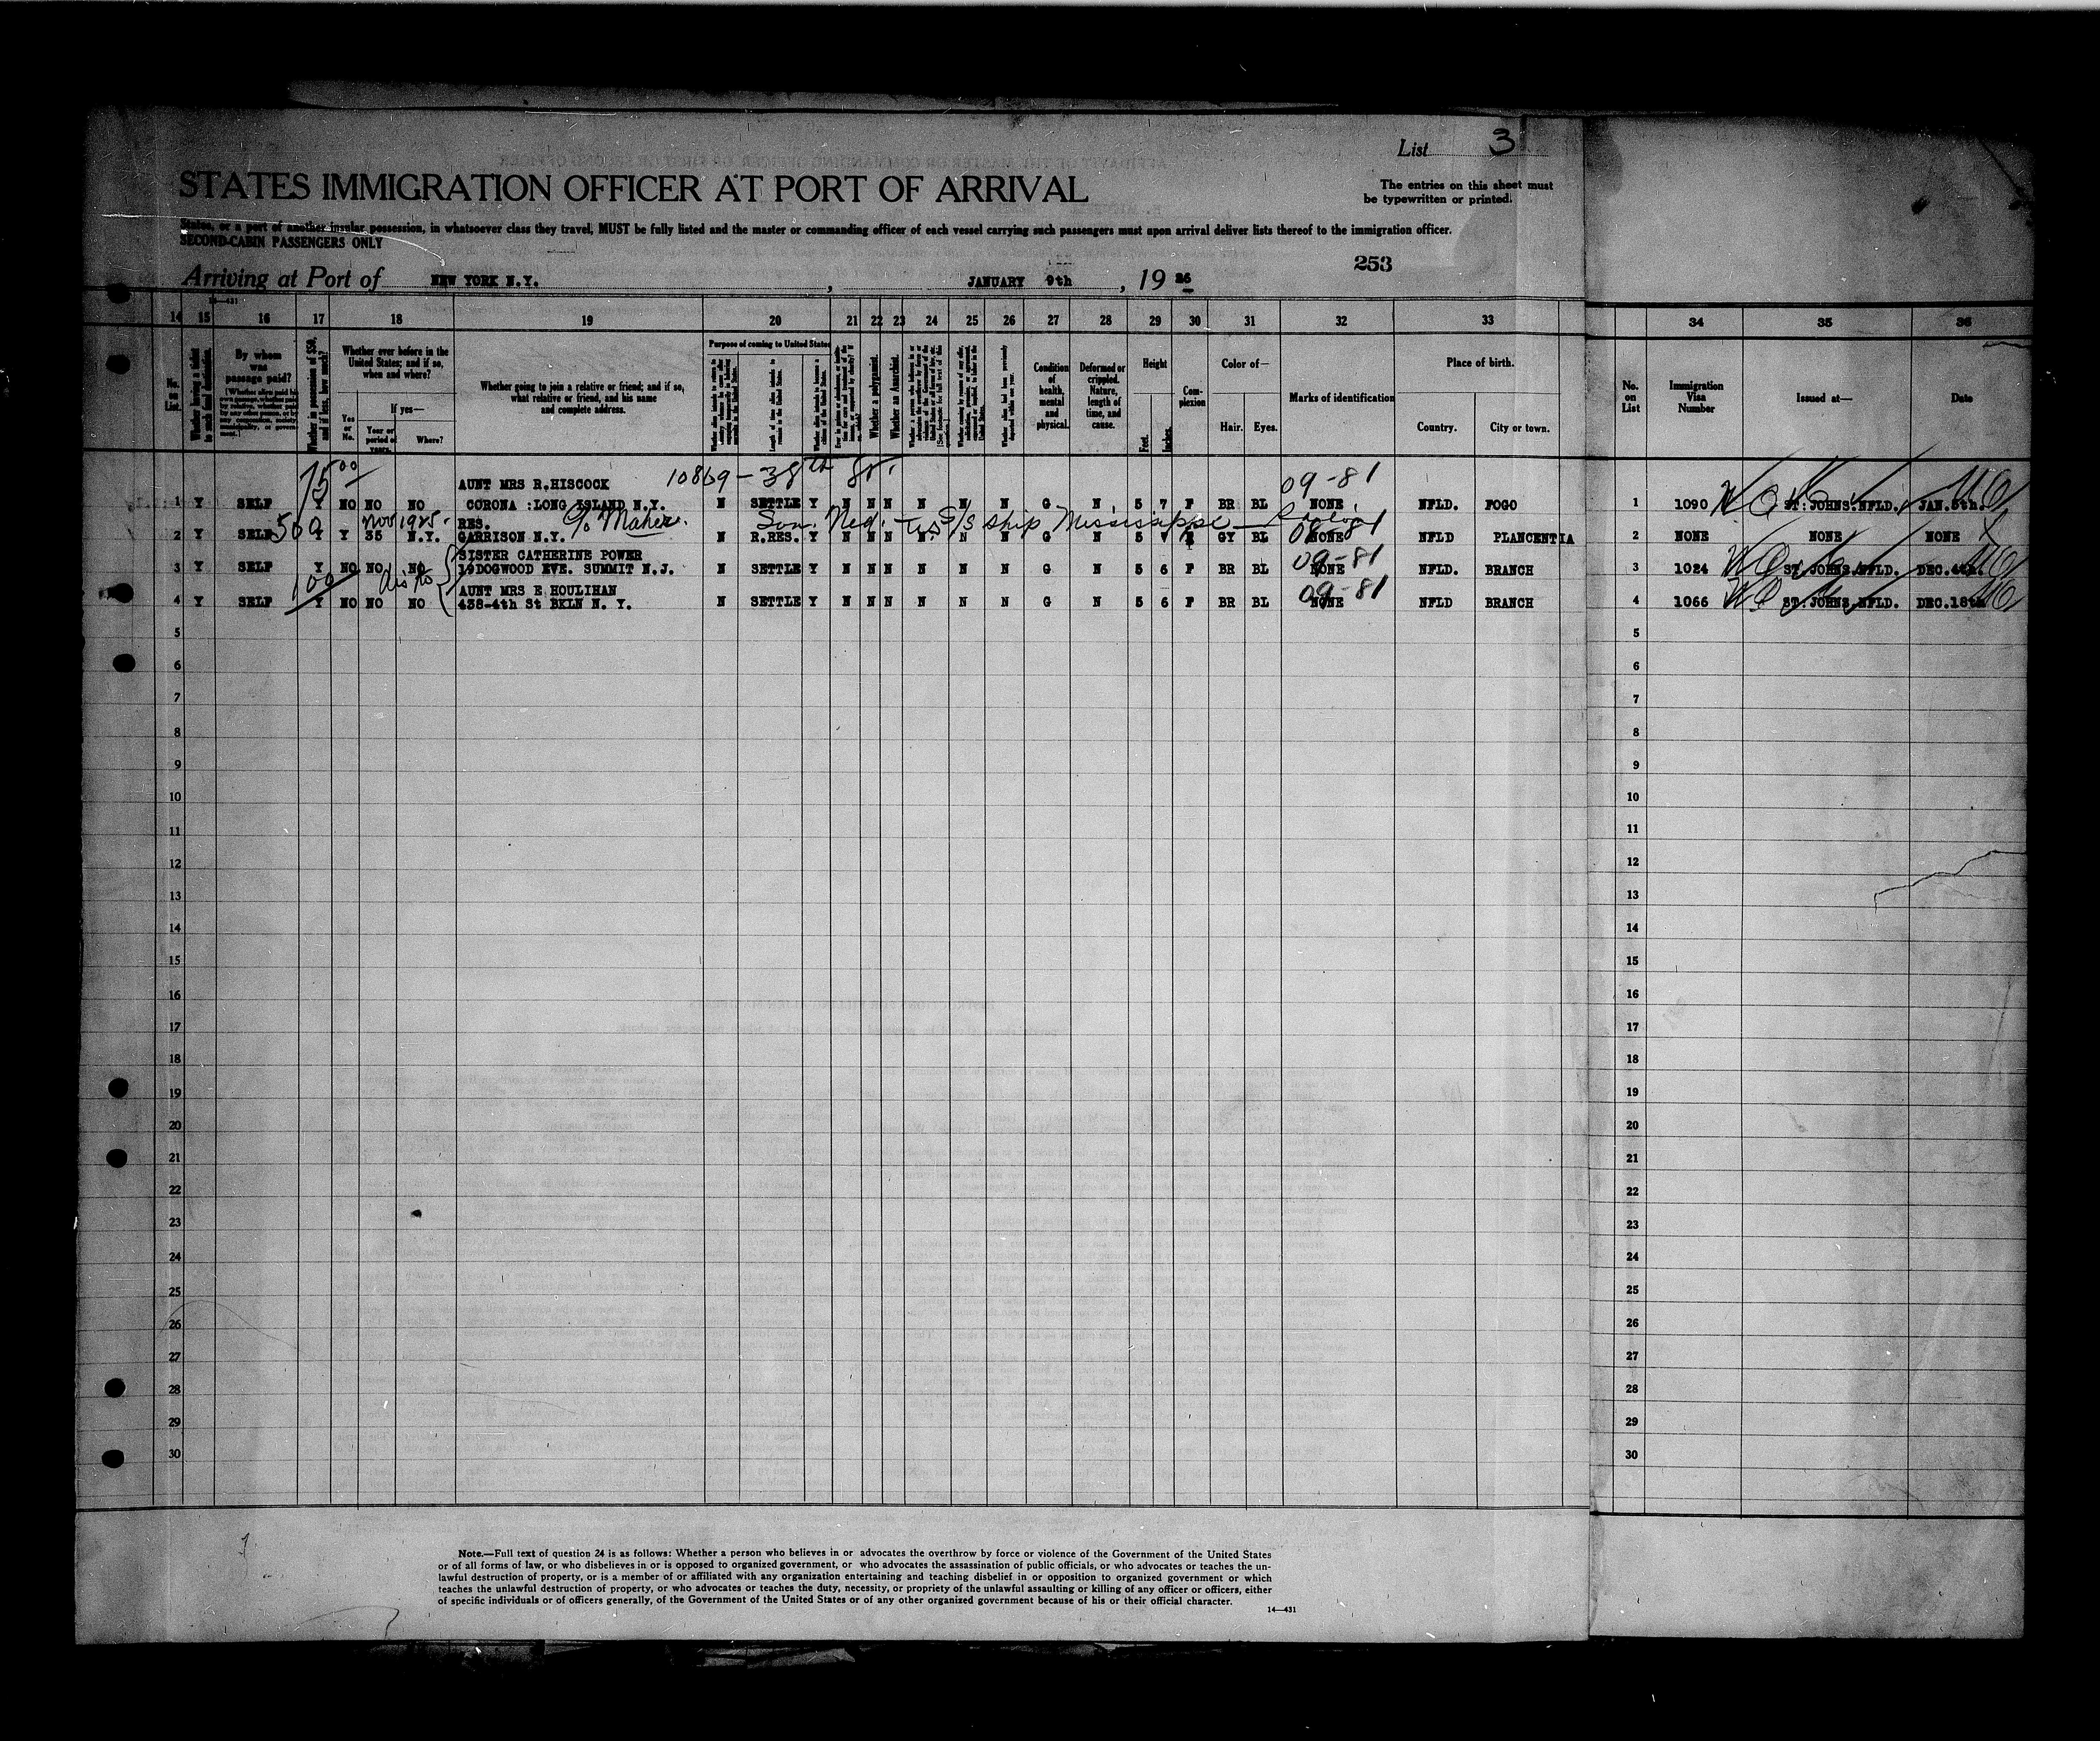 List 3
STATES IMMIGRATION OFFICER AT PORT OF ARRIVAL
The entries on this sheet must
be typewritten or printed.
States, or a port of another insular possession, in whatsoever class they travel, MUST be fully listed and the master or commanding officer of each vessel carrying such passengers must upon arrival deliver lists thereof to the immigration officer.
SECOND-CABIN PASSENGERS ONLY
253
Arriving at Port of NEW YORK N.Y. , JANUARY 9th , 19 26
14—431
14 15 16 17 18 19 20 21 22 23 24 25 26 27 28 29 30 31 32 33 34 35 36
No. on List.
By whom was passage paid?
Whether in possession of $50, and if less, how much?
Whether ever before in the United States; and if so, when and where?
Yes or No.
If yes—
Year or period of years.
Where?
Whether going to join a relative or friend; and if so, what relative or friend, and his name and complete address.
Purpose of coming to United States
Length of time alien intends to remain in the United States.
Whether a polygamist.
Whether an Anarchist.
Condition of health, mental and physical.
Deformed or crippled. Nature, length of time, and cause.
Height
Feet. Inches.
Complexion
Color of—
Hair. Eyes.
Marks of identification
Place of birth.
Country. City or town.
No. on List
Immigration Visa Number
Issued at—
Date
75 00
AUNT MRS R.HISCOCK 10869-38th St. 09-81
1 Y SELF Y NO NO NO CORONA :LONG ISLAND N.Y. N SETTLE Y N N N N N N G N 5 7 F BR BL NONE NFLD. FOGO 1 1090 ST.JOHNS.NFLD. JAN.5th.
500 Nov 1925- RES. c/o Maher. Son: Ned: U.S. S/S Ship Mississippi 08-81
2 Y SELF Y Y 35 N.Y. GARRISON N.Y. N R.RES. Y N N N N N N G N 5 GY BL NONE NFLD PLANCENTIA 2 NONE NONE NONE
SISTER CATHERINE POWER 09-81
3 Y SELF Y NO NO NO 19DOGWOOD EVE. SUMMIT N.J. N SETTLE Y N N N N N N G N 5 6 F BR BL NONE NFLD. BRANCH 3 1024 ST.JOHNS.NFLD. DEC.4th.
100 AUNT MRS E.HOULIHAN 09-81
4 Y SELF Y NO NO NO 438-4th St BKLN N. Y. N SETTLE Y N N N N N N G N 5 6 F BR BL NONE NFLD BRANCH 4 1066 ST.JOHNS.NFLD. DEC.18th
5 5
6 6
7 7
8 8
9 9
10 10
11 11
12 12
13 13
14 14
15 15
16 16
17 17
18 18
19 19
20 20
21 21
22 22
23 23
24 24
25 25
26 26
27 27
28 28
29 29
30 30
Note.—Full text of question 24 is as follows: Whether a person who believes in or advocates the overthrow by force or violence of the Government of the United States
or of all forms of law, or who disbelieves in or is opposed to organized government, or who advocates the assassination of public officials, or who advocates or teaches the un-
lawful destruction of property, or is a member of or affiliated with any organization entertaining and teaching disbelief in or opposition to organized government or which
teaches the unlawful destruction of property, or who advocates or teaches the duty, necessity, or propriety of the unlawful assaulting or killing of any officer or officers, either
of specific individuals or of officers generally, of the Government of the United States or of any other organized government because of his or their official character.
14—431